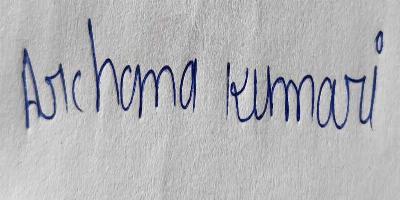 Archana kumari